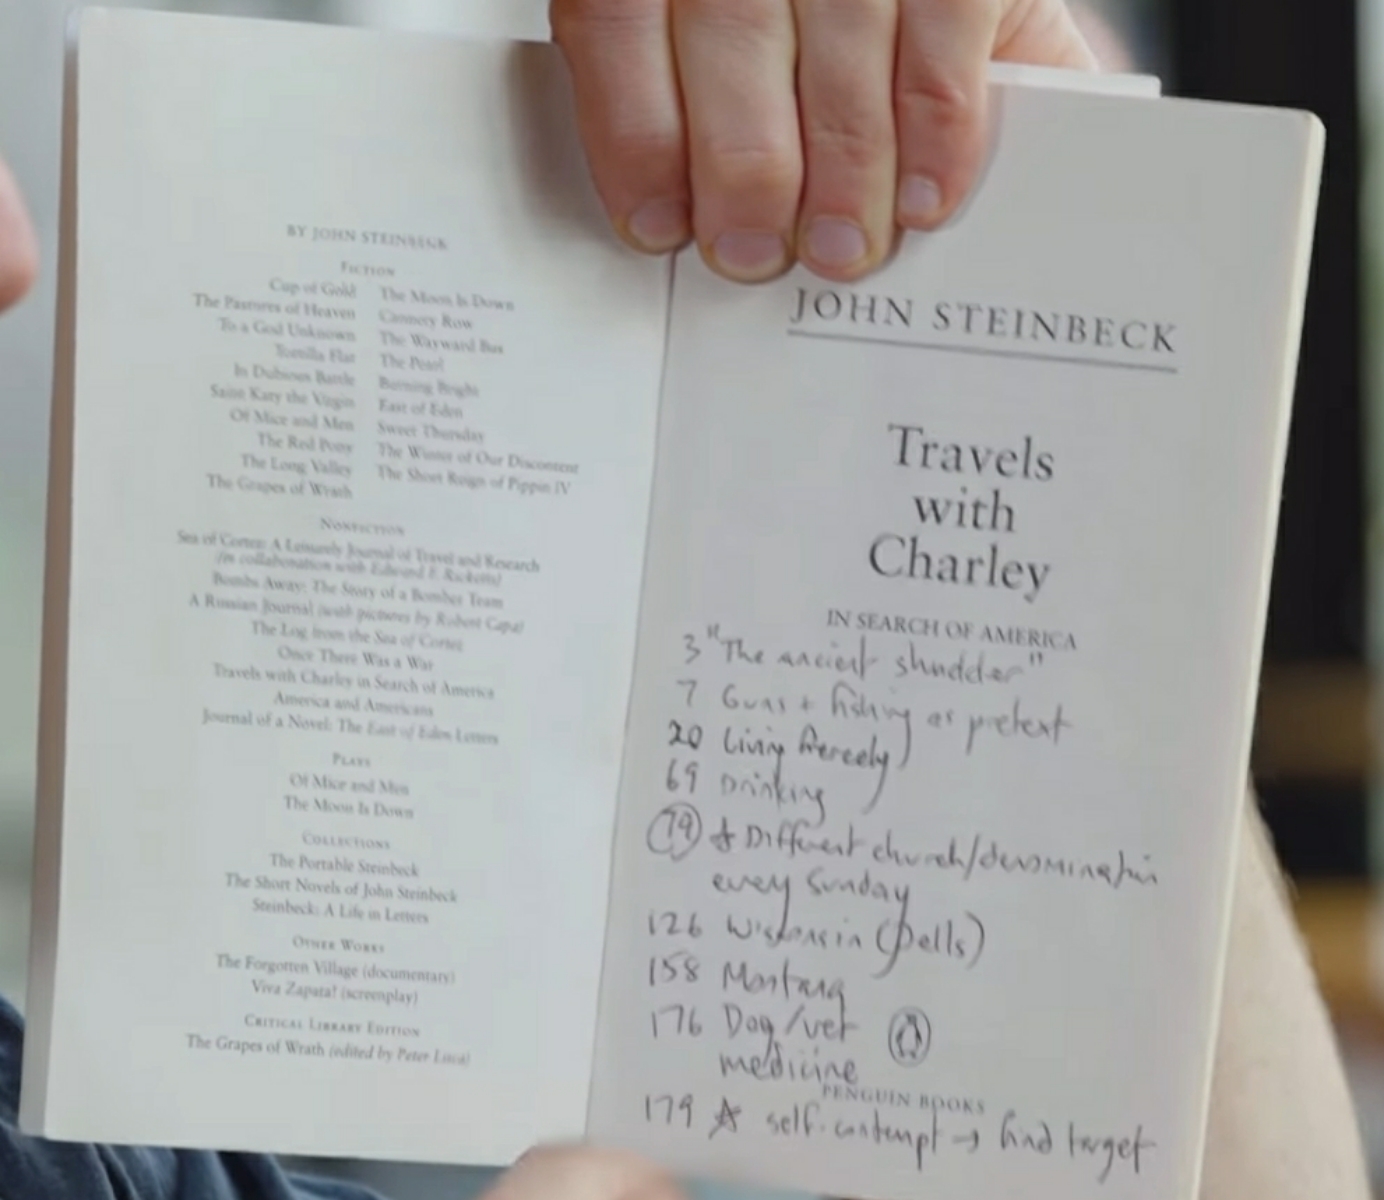 BY JOHN STEINBECK
FICTION
Cup of Gold
The Pastures of Heaven
To a God Unknown
Tortilla Flat
In Dubious Battle
Saint Katy the Virgin
Of Mice and Men
The Red Pony
The Long Valley
The Grapes of Wrath
The Moon Is Down
Cannery Row
The Wayward Bus
The Pearl
Burning Bright
East of Eden
Sweet Thursday
The Winter of Our Discontent
The Short Reign of Pippin IV
NONFICTION
Sea of Cortez: A Leisurely Journal of Travel and Research
(in collaboration with Edward F. Ricketts)
Bombs Away: The Story of a Bomber Team
A Russian Journal (with pictures by Robert Capa)
The Log from the Sea of Cortez
Once There Was a War
Travels with Charley in Search of America
America and Americans
Journal of a Novel: The East of Eden Letters
PLAYS
Of Mice and Men
The Moon Is Down
COLLECTIONS
The Portable Steinbeck
The Short Novels of John Steinbeck
Steinbeck: A Life in Letters
OTHER WORKS
The Forgotten Village (documentary)
Viva Zapata! (screenplay)
CRITICAL LIBRARY EDITION
The Grapes of Wrath (edited by Peter Lisca)
JOHN STEINBECK
Travels
with
Charley
IN SEARCH OF AMERICA
3 "The ancient shudder"
7 Guns + fishing as pretext
20 Living fiercely
69 Drinking
79 Different church/denomination
every Sunday
126 Wisconsin (Dells)
158 Montana
176 Dog/vet
medicine
PENGUIN BOOKS
179 self-contempt → find target